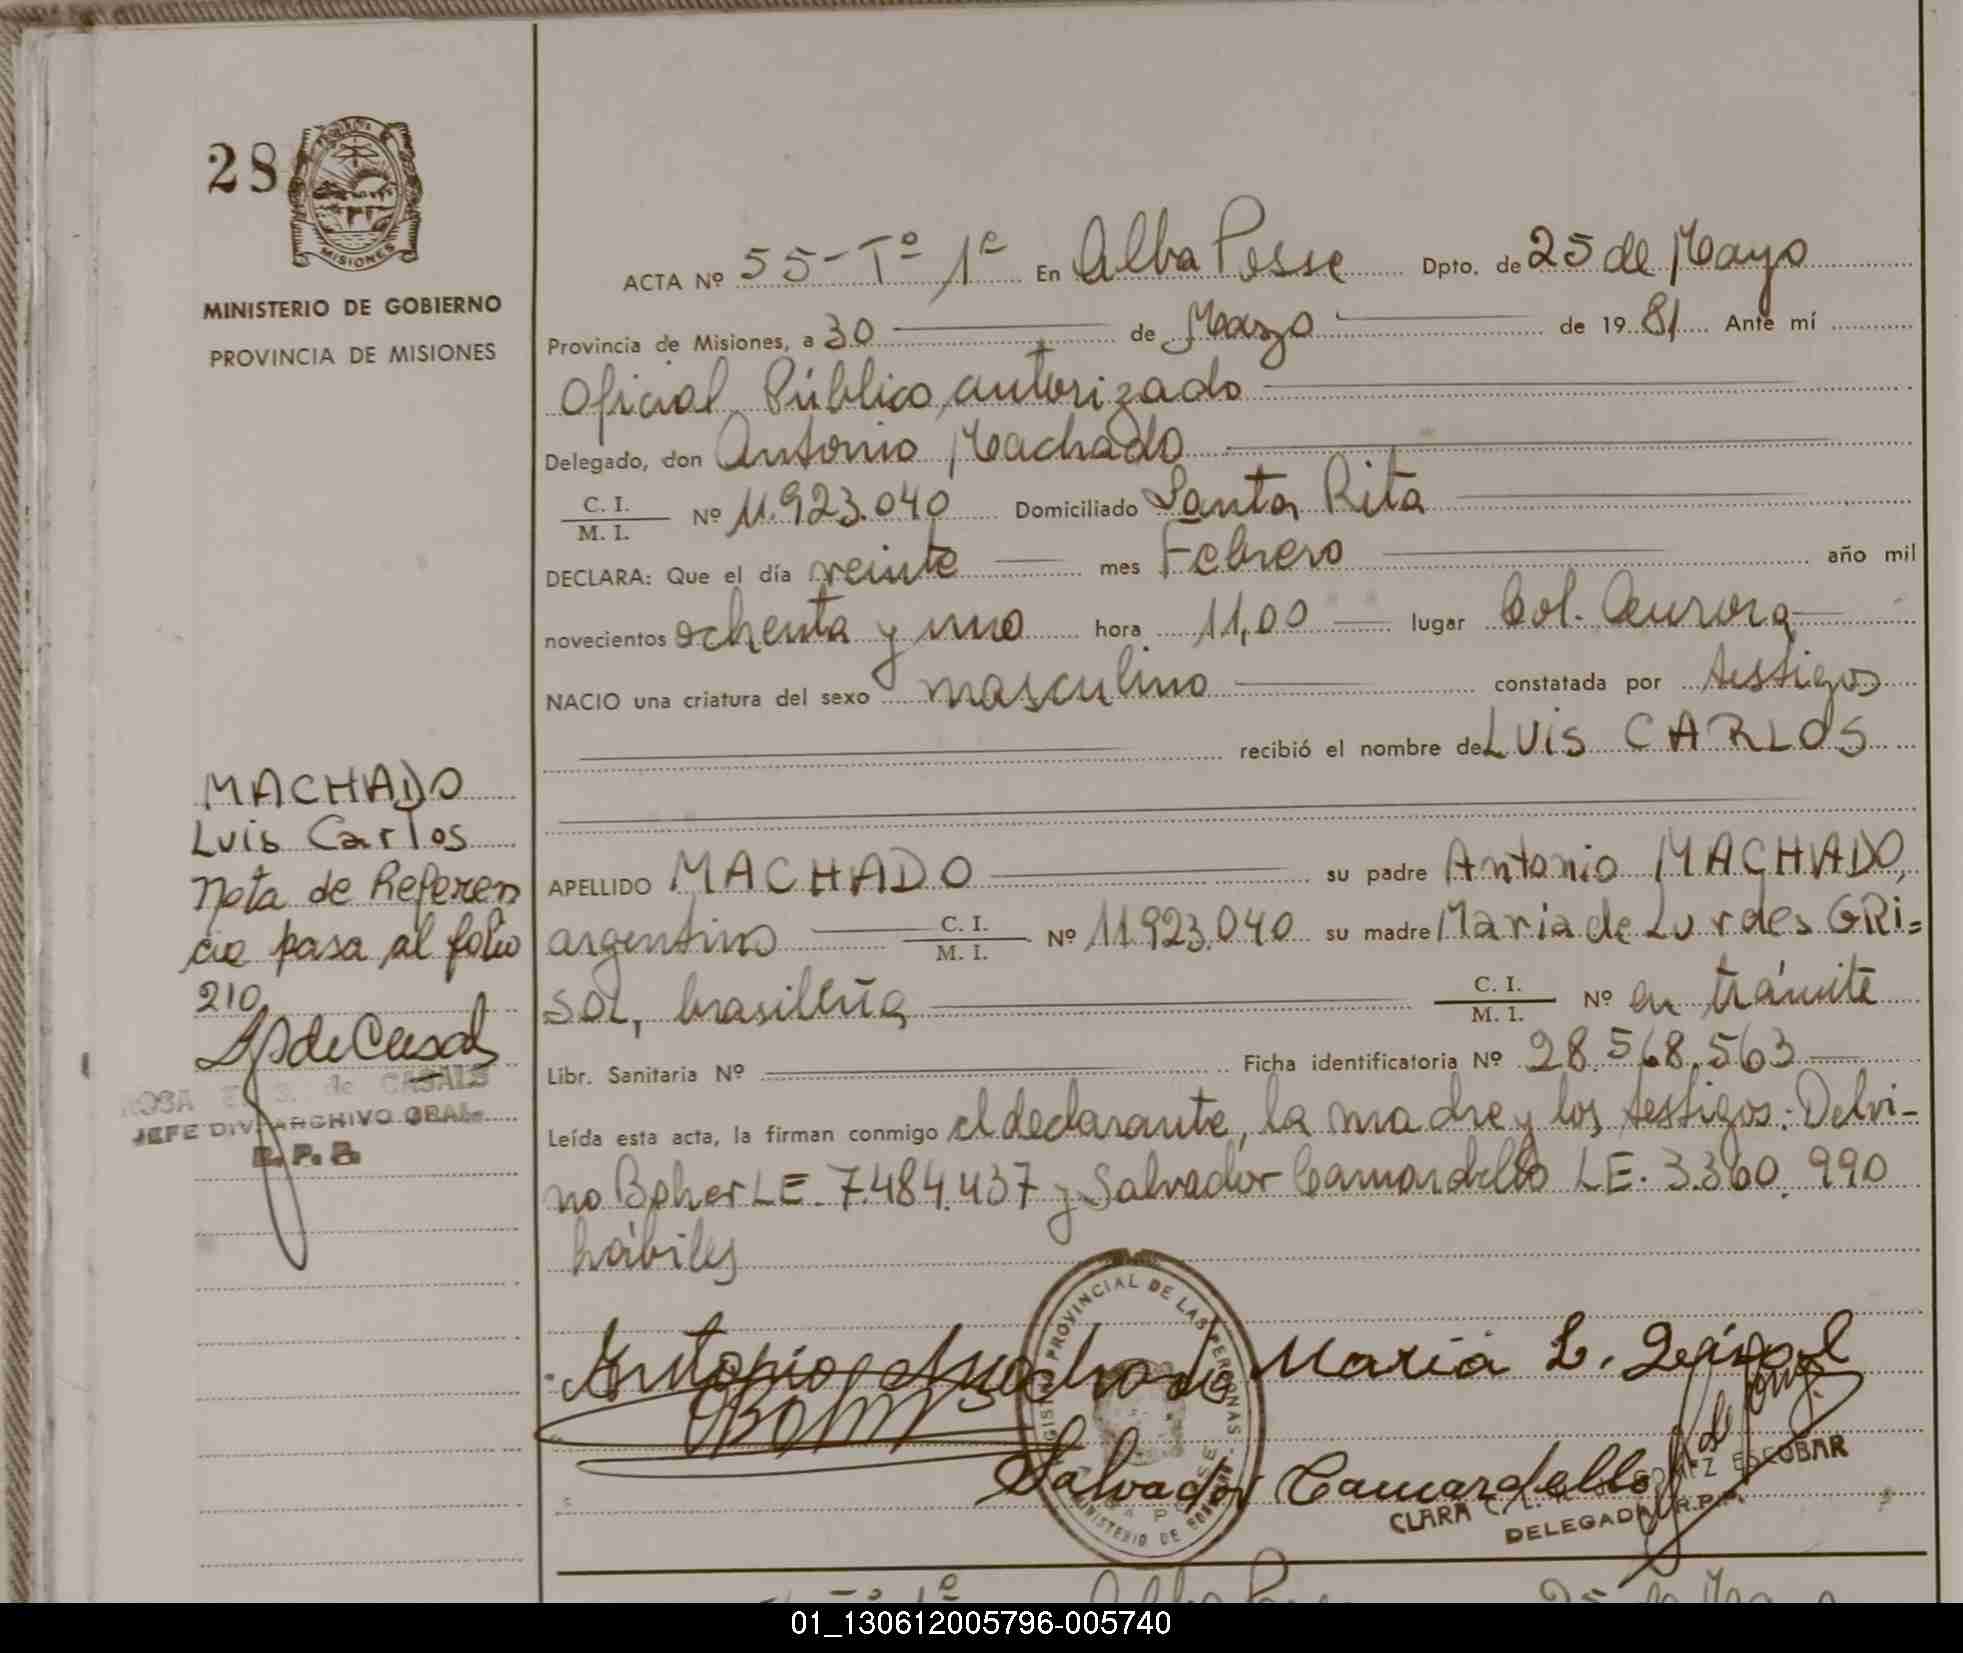 28
MISIONES
MINISTERIO DE GOBIERNO
PROVINCIA DE MISIONES
ACTA Nº 55-Tº 1º En Alba Posse Dpto. de 25 de Mayo
Provincia de Misiones, a 30 de Marzo de 1981 Ante mí
Oficial Público autorizado
Delegado, don Antonio Machado
C. I.
M. I. Nº 11.923.040 Domiciliado Santa Rita
DECLARA: Que el día veinte mes Febrero año mil
novecientos ochenta y uno hora 11,00 lugar Col. Aurora
NACIO una criatura del sexo masculino constatada por testigos
recibió el nombre de LUIS CARLOS
APELLIDO MACHADO su padre Antonio MACHADO,
argentino C. I. M. I. Nº 11.923.040 su madre Maria de Lurdes GRI=
SOL, brasileña C. I. M. I. Nº en trámite
Libr. Sanitaria Nº Ficha identificatoria Nº 28.568.563
Leída esta acta, la firman conmigo el declarante, la madre y los testigos: Delvi-
no Boher LE. 7.484.437 y Salvador Camardello LE. 3.360.990
hábiles
MACHADO
Luis Carlos
Nota de Referen
cia pasa al folio
210
de Casals
ROSA E. S. de CASALS
JEFE DIV. ARCHIVO GRAL.
R. P. P.
Antonio Machado Maria L.
Salvador Camardello
PROVINCIAL DE LAS PERSONAS
MINISTERIO DE
CLARA ESCOBAR
DELEGADA R.P.P.
Alba Posse 25 de Mayo
01_130612005796-005740